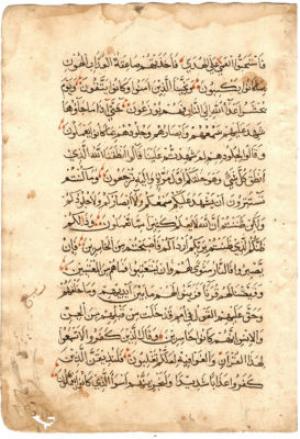 فاستحبوا العمى على الهدى فاخذتهم صاعقة العذاب الهون
بما كانوا يكسبون ونجينا الذين امنوا وكانوا يتقون ويوم
يحشر اعداء الله الى النار فهم يوزعون حتى اذا ما جاؤها
شهد عليهم سمعهم وابصارهم وجلودهم بما كانوا يعملون
وقالوا لجلودهم لم شهدتم علينا قالوا انطقنا الله الذي
انطق كل شيء وهو خلقكم اول مرة واليه ترجعون وما كنتم
تستترون ان يشهد عليكم سمعكم ولا ابصاركم ولا جلودكم
ولكن ظننتم ان الله لا يعلم كثيرا مما تعملون وذلكم
ظنكم الذي ظننتم بربكم ارداكم فاصبحتم من الخاسرين فان
يصبروا فالنار مثوى لهم وان يستعتبوا فما هم من المعتبين
وقيضنا لهم قرناء فزينوا لهم ما بين ايديهم وما خلفهم
وحق عليهم القول في امم قد خلت من قبلهم من الجن
والانس انهم كانوا خاسرين وقال الذين كفروا لا تسمعوا
لهذا القران والغوا فيه لعلكم تغلبون فلنذيقن الذين
كفروا عذابا شديدا ولنجزينهم اسوا الذي كانوا يعملون